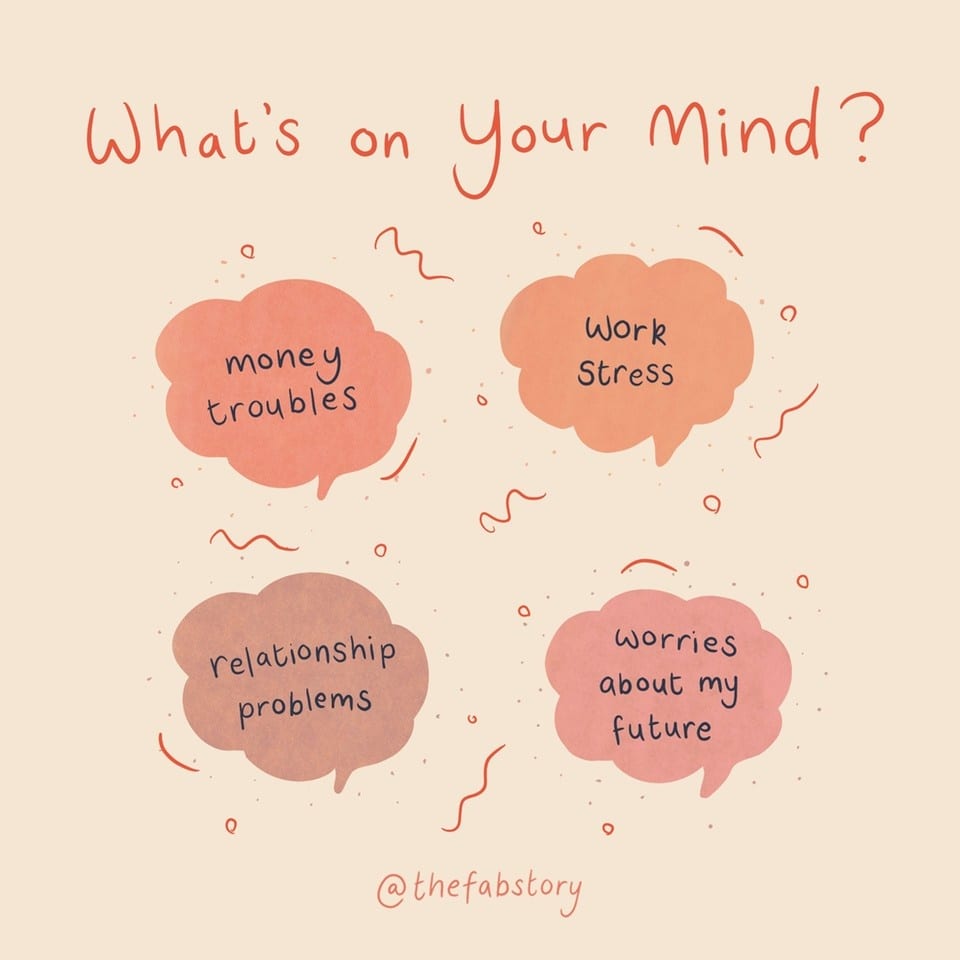 What's on Your Mind?
money
troubles
Work
Stress
relationship
problems
worries
about my
future
@thefabstory